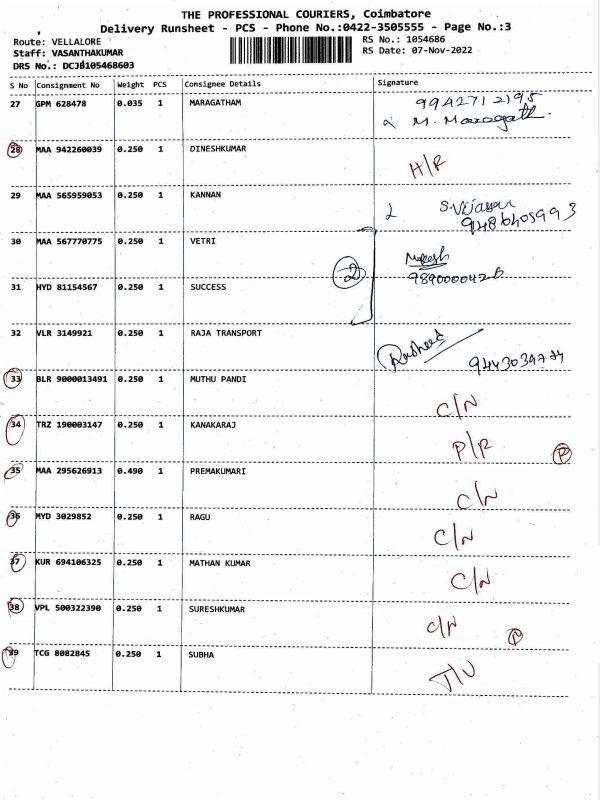 THE PROFESSIONAL COURIERS, Coimbatore
Delivery Runsheet - PCS - Phone No.:0422-3505555 - Page No.:3
Route: VELLALORE
RS No.: 1054686
Staff: VASANTHAKUMAR
RS Date: 07-Nov-2022
DRS No.: DCJB105468603
S No Consignment No Weight PCS Consignee Details Signature
27 GPM 628478 0.035 1 MARAGATHAM 9942712195
M. Maragath
28 MAA 942260039 0.250 1 DINESHKUMAR H/R
29 MAA 565959053 0.250 1 KANNAN
9486405993
30 MAA 567770775 0.250 1 VETRI
2
31 HYD 81154567 0.250 1 SUCCESS
32 VLR 3149921 0.250 1 RAJA TRANSPORT Rasheed
33 BLR 9000013491 0.250 1 MUTHU PANDI C/N
34 TRZ 190003147 0.250 1 KANAKARAJ P/R
35 MAA 295626913 0.490 1 PREMAKUMARI C/N
36 MYD 3029852 0.250 1 RAGU C/N
37 KUR 694106325 0.250 1 MATHAN KUMAR C/N
38 VPL 500322390 0.250 1 SURESHKUMAR C/N
39 TCG 8082845 0.250 1 SUBHA